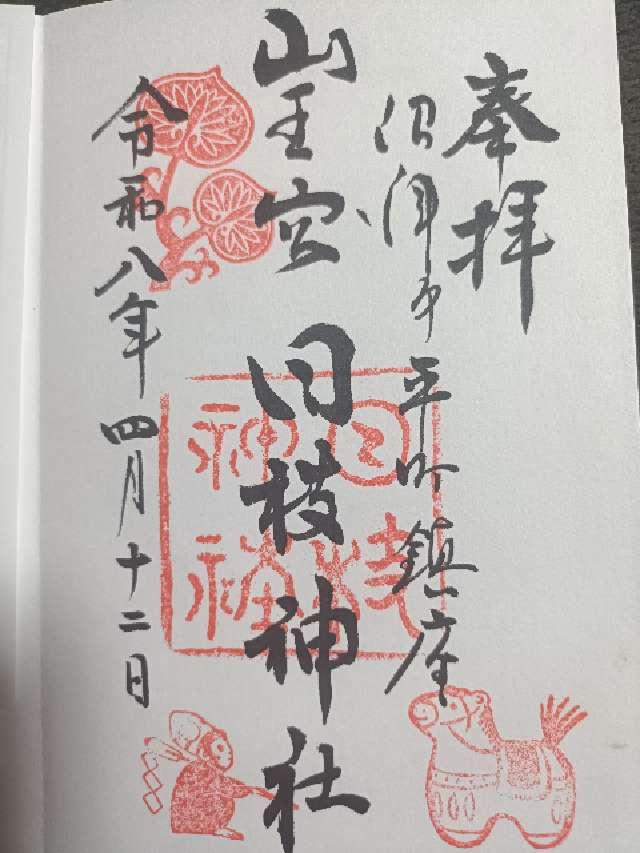 奉拝
沼津市平町鎮座
山王宮 日枝神社
日枝神社
令和八年四月十二日